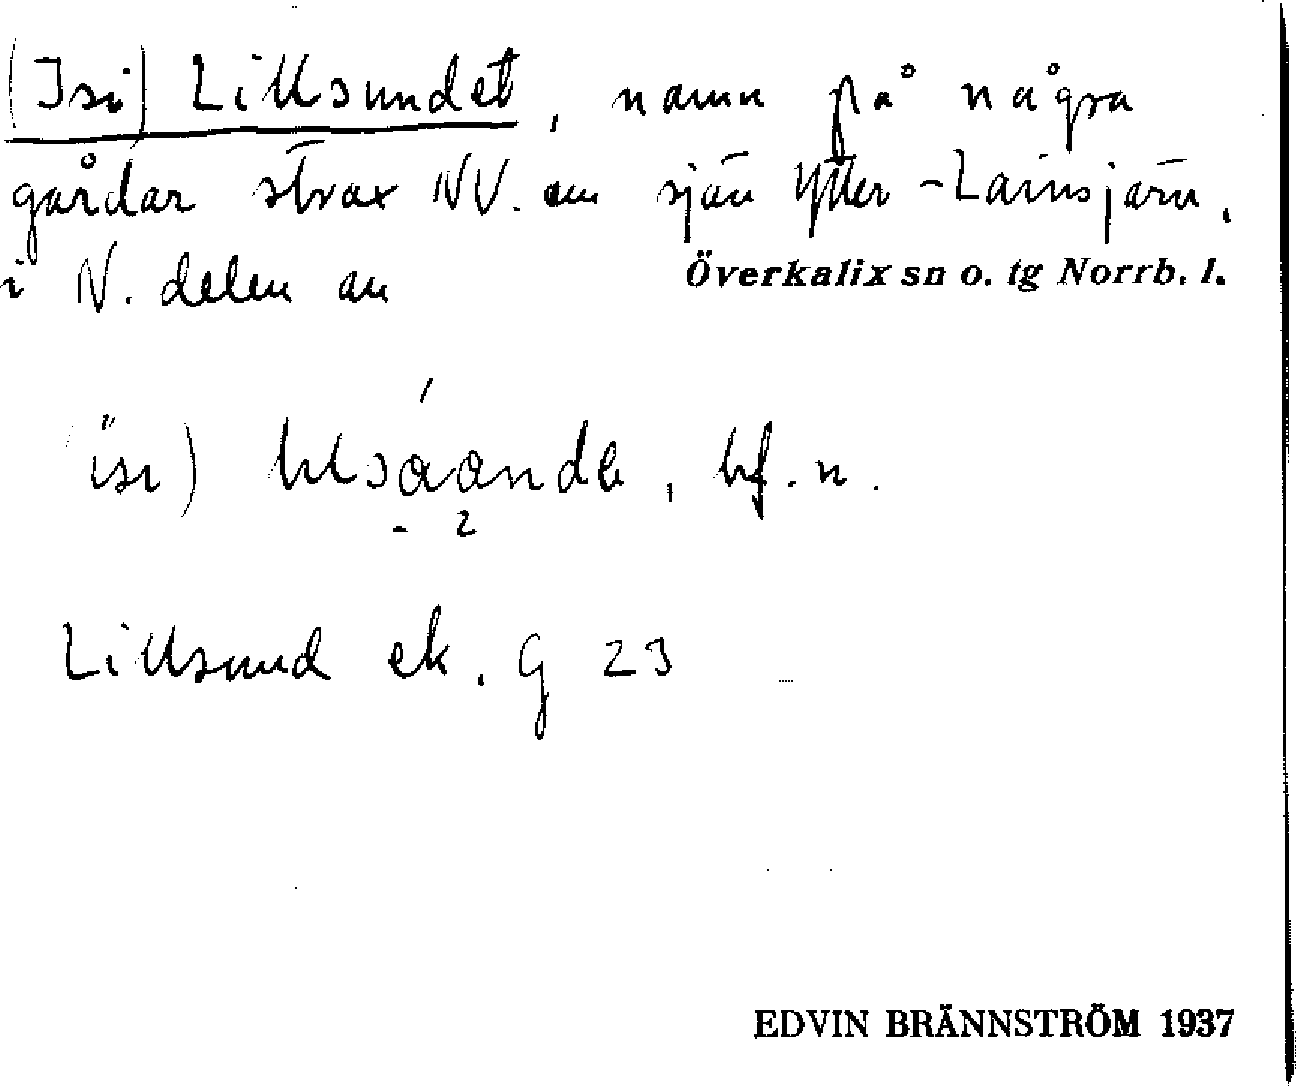 (Isi) Lillsundet, namn på några
gårdar strax NV. om sjön Ytter-Lainsjärv,
i N. delen av
Överkalix sn o. tg Norrb. l.
bf. n.
Lillsund ek. G 23
EDVIN BRÄNNSTRÖM 1937